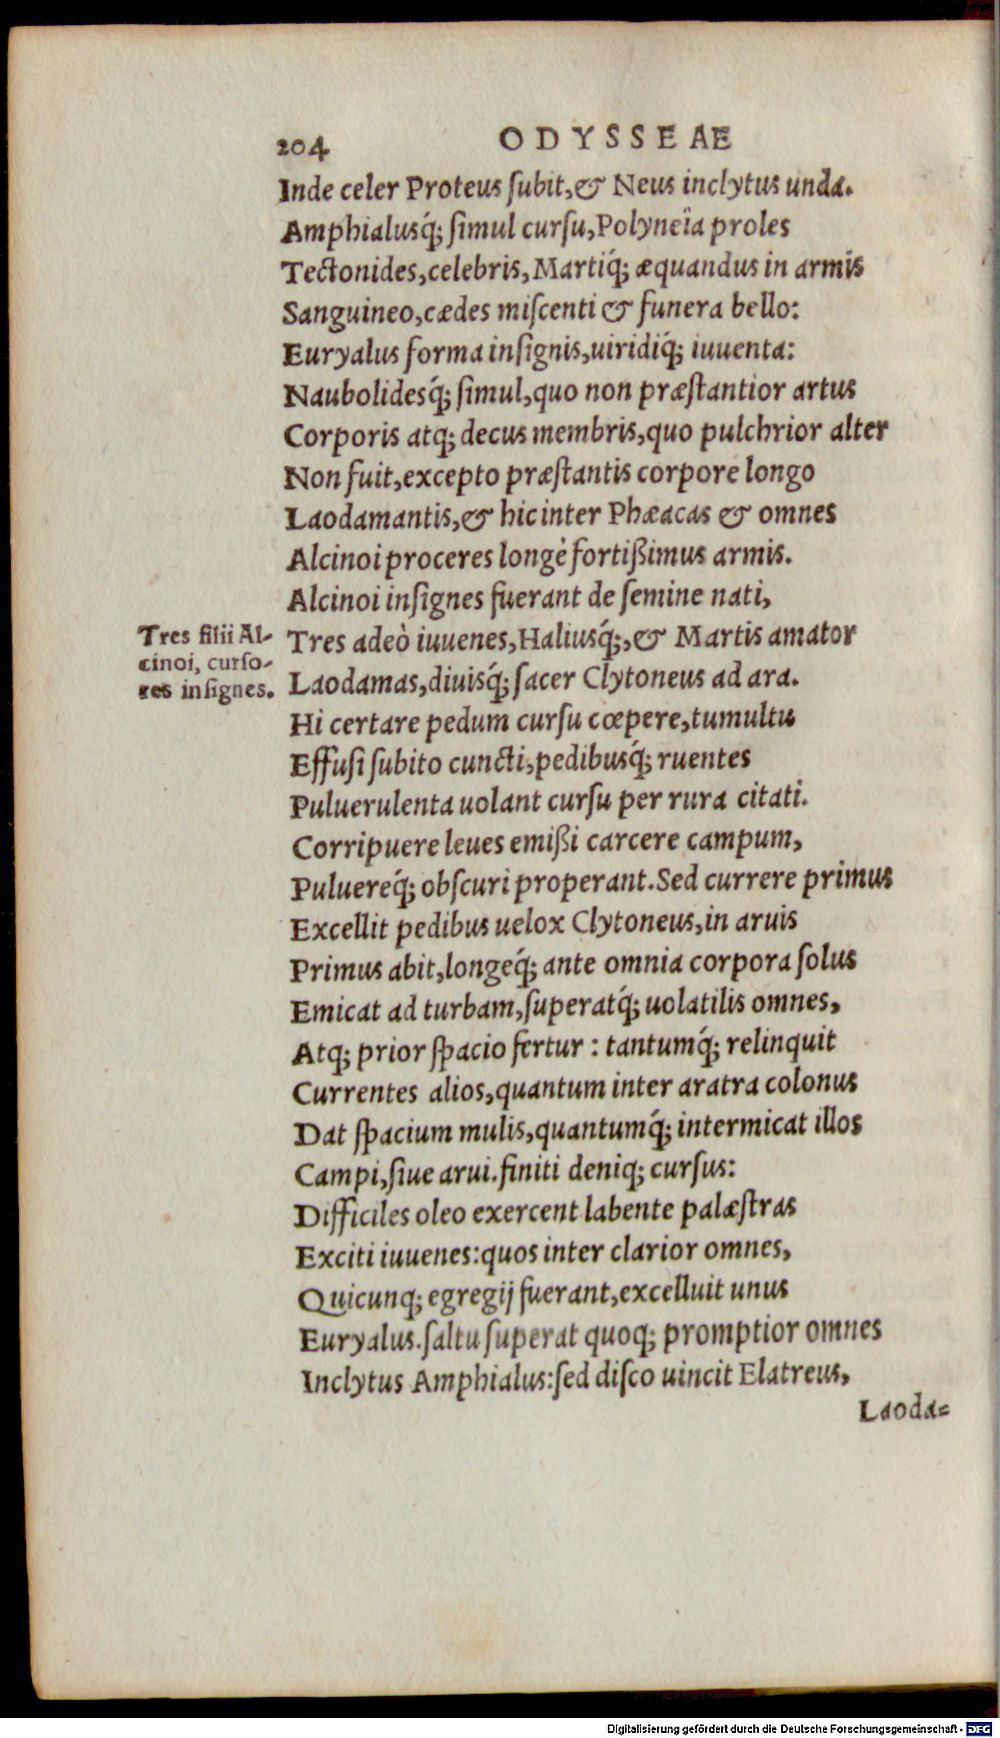 204 ODYSSEAE
Inde celer Proteus ſubit,& Neus inclytus unda.
Amphialusq́; ſimul curſu,Polyneïa proles
Tectonides,celebris,Martiq́; æquandus in armis
Sanguineo,cædes miſcenti & funera bello:
Euryalus forma inſignis,uiridiq́; iuuenta:
Naubolidesq́; ſimul,quo non præſtantior artus
Corporis atq; decus membris,quo pulchrior alter
Non fuit,excepto præſtantis corpore longo
Laodamantis,& hic inter Phæacas & omnes
Alcinoi proceres longè fortißimus armis.
Alcinoi inſignes fuerant de ſemine nati,
Tres adeò iuuenes,Haliusq́;,& Martis amator
Laodamas,diuisq́; ſacer Clytoneus ad ara.
Hi certare pedum curſu cœpere,tumultu
Effuſi ſubito cuncti,pedibusq́; ruentes
Puluerulenta uolant curſu per rura citati.
Corripuere leues emißi carcere campum,
Puluereq́; obſcuri properant.Sed currere primus
Excellit pedibus uelox Clytoneus,in aruis
Primus abit,longeq́; ante omnia corpora ſolus
Emicat ad turbam,ſuperatq́; uolatilis omnes,
Atq; prior ſpacio fertur : tantumq́; relinquit
Currentes alios,quantum inter aratra colonus
Dat ſpacium mulis,quantumq́; intermicat illos
Campi,ſiue arui.finiti deniq; curſus:
Difficiles oleo exercent labente palæſtras
Exciti iuuenes:quos inter clarior omnes,
Quicunq; egregij fuerant,excelluit unus
Euryalus.ſaltu ſuperat quoq; promptior omnes
Inclytus Amphialus:ſed diſco uincit Elatreus,
Laoda=
Tres filii Al-
cinoi, curſo-
res inſignes.
Digitalisierung gefördert durch die Deutsche Forschungsgemeinschaft - DFG